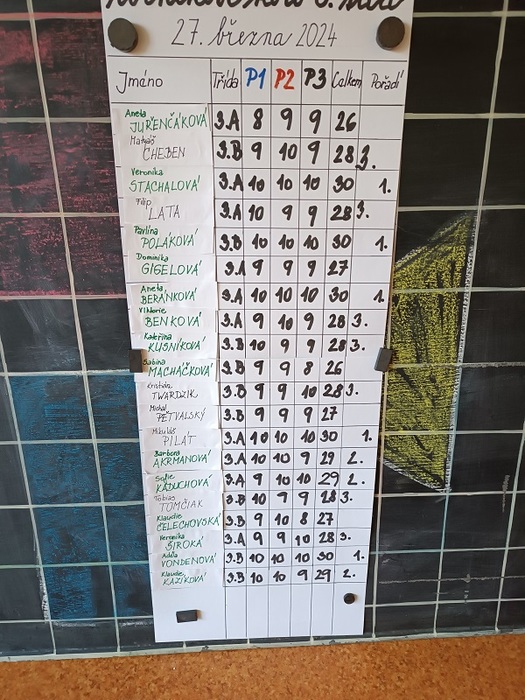 27. března 2024
Jméno Třída P1 P2 P3 Celkem Pořadí
Aneta
JUŘENČÁKOVÁ 3.A 8 9 9 26
Matyáš
CHEBEN 3.B 9 10 9 28 3.
Veronika
STACHALOVÁ 3.A 10 10 10 30 1.
Filip
LATA 3.A 10 9 9 28 3.
Pavlína
POLÁKOVÁ 3.B 10 10 10 30 1.
Dominika
GIGELOVÁ 3.A 9 9 9 27
Aneta
BERÁNKOVÁ 3.A 10 10 10 30 1.
Viktorie
BENKOVÁ 3.A 9 10 9 28 3.
Kateřina
KUSNÍKOVÁ 3.B 10 9 9 28 3.
Sabina
MACHÁČKOVÁ 3.B 9 9 8 26
Kristián
TWARDZIK 3.B 9 9 10 28 3.
Michal
PETVALSKÝ 3.B 9 9 9 27
Mikuláš
PILÁT 3.A 10 10 10 30 1.
Barbora
AKRMANOVÁ 3.A 10 10 9 29 2.
Sofie
KADUCHOVÁ 3.A 9 10 10 29 2.
Tobias
TOMČIAK 3.B 10 9 9 28 3.
Klaudie
ČELECHOVSKÁ 3.B 9 10 8 27
Veronika
ŠIROKÁ 3.A 9 9 10 28 3.
Adéla
VONDENOVÁ 3.B 10 10 10 30 1.
Klaudie
KAZÍKOVÁ 3.B 10 10 9 29 2.